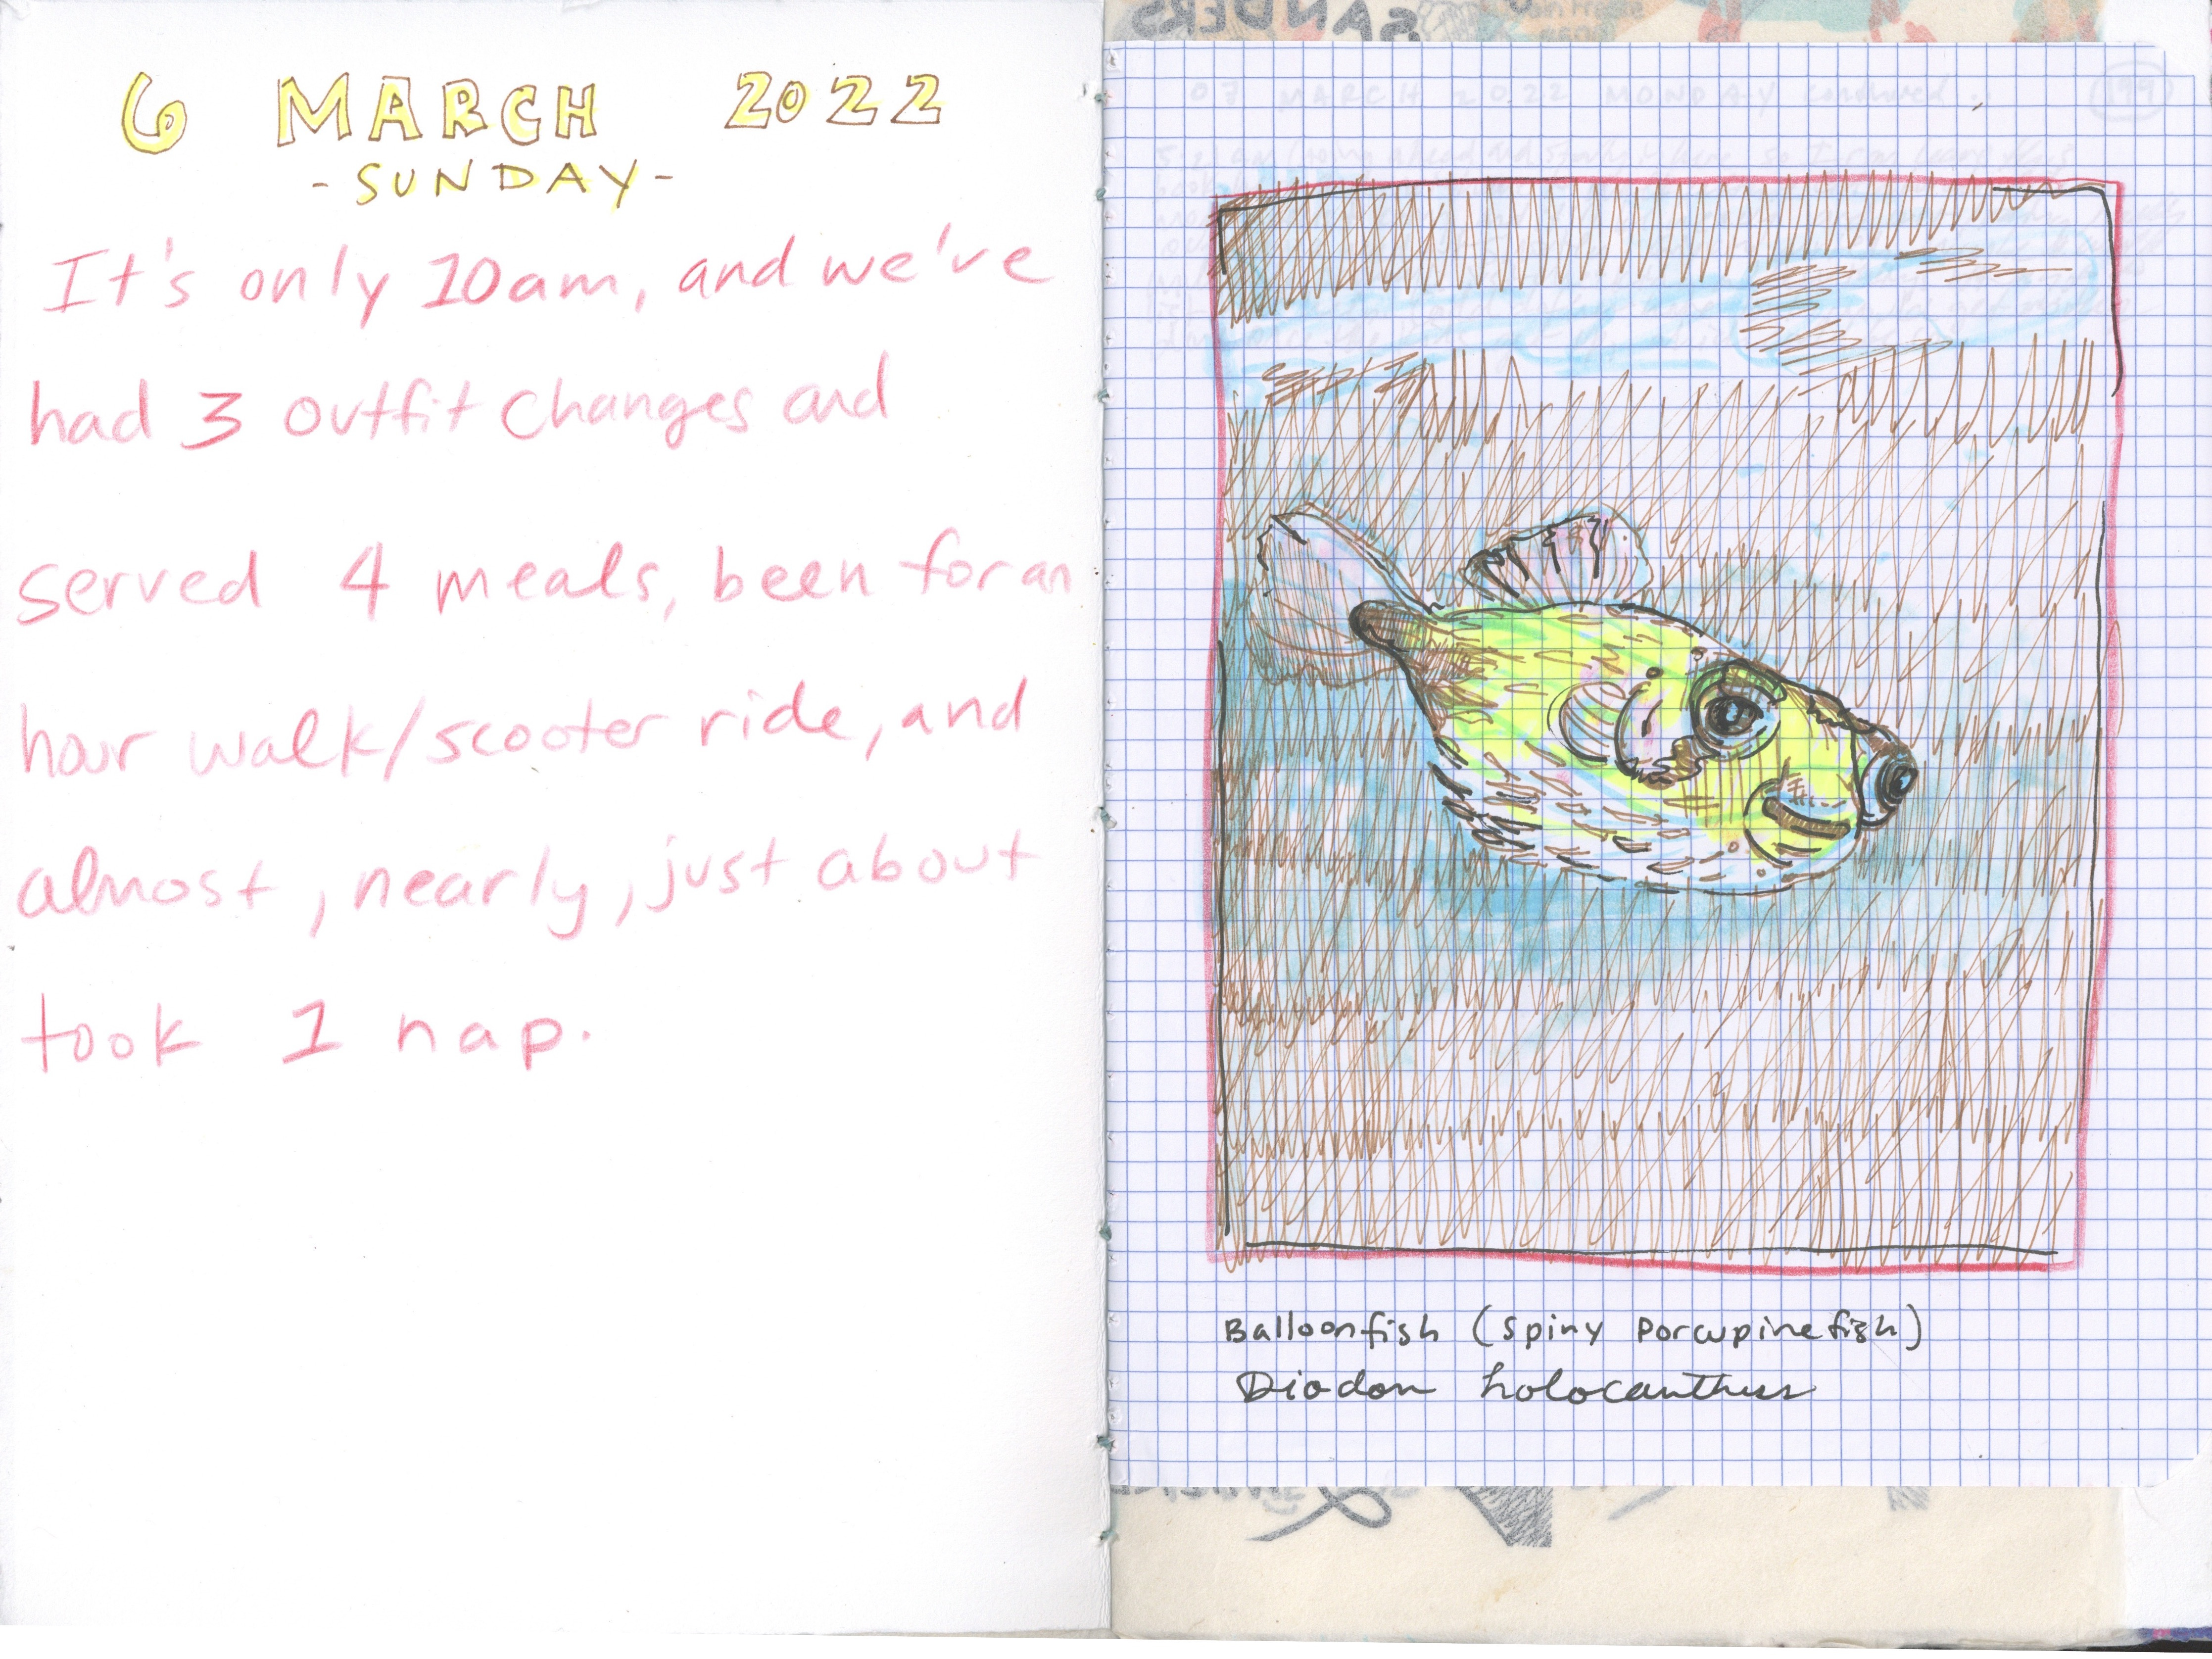 6 MARCH 2022
- SUNDAY -
It's only 10am, and we've
had 3 outfit changes and
served 4 meals, been for an
hour walk/scooter ride, and
almost, nearly, just about
took 1 nap.
SANDERS
07 MARCH 2022 MONDAY continued..
199
Balloonfish (spiny porcupinefish)
Diodon holocanthus